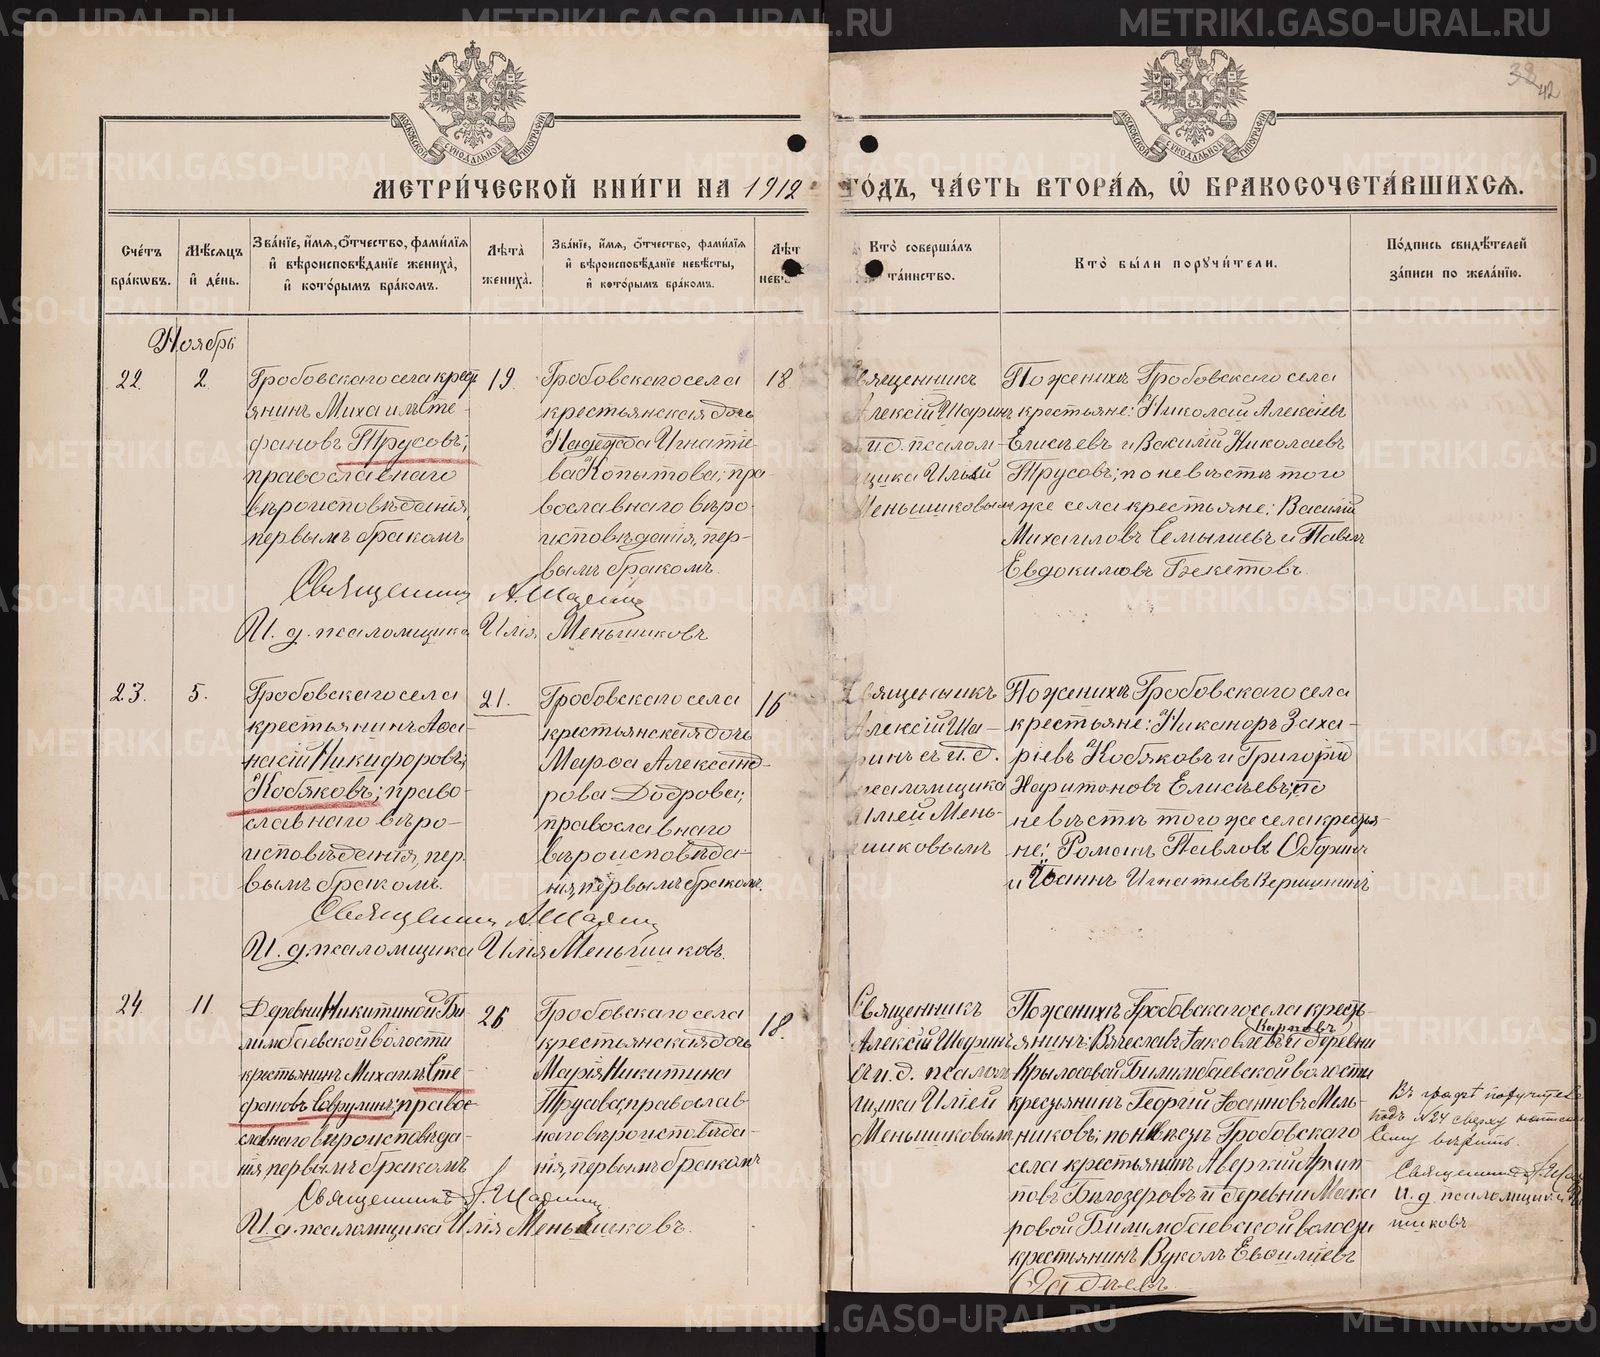 METRIKI.GASO-URAL.RU
38
42
МОСКОВСКОЙ СѴНОДАЛЬНОЙ ТИПОГРАФІИ
МОСКОВСКОЙ СѴНОДАЛЬНОЙ ТИПОГРАФІИ
МЕТРИ́ЧЕСКОЙ КНИ́ГИ НА 1912
ГО́ДЪ, ЧА́СТЬ ВТОРА́Я, Ѡ҆ БРАКОСОЧЕТА́ВШИХСЯ.
Сче́тъ бра́кѡвъ.
Мѣ́сяцъ и҆ де́нь.
Зва́нїе, и҆́мя, ѻ҆́тчество, фами́лїя
и҆ вѣроисповѣ́данїе жениха̀,
и҆ кото́рымъ бра́комъ.
Лѣ́та жениха̀.
Зва́нїе, и҆́мя, ѻ҆́тчество, фами́лїя
и҆ вѣроисповѣ́данїе невѣ́сты,
и҆ кото́рымъ бра́комъ.
Лѣ́т
невѣ
Кто̀ соверша́лъ
та́инство.
Кто̀ бы́ли порꙋчи́тели.
По́дпись свидѣ́телей
за́писи по жела́нїю.
Ноябрь
22
2
Гробовскаго села крест
янинъ Михаилъ Сте-
фановъ Трусовъ;
православнаго
вѣроисповѣданія,
первымъ бракомъ
19
Гробовскаго села
крестьянская дочь
Надежда Игнатіе-
ва Копытова; пра
вославнаго вѣро-
исповѣданія, пер-
вымъ бракомъ.
18
Священникъ
Алексій Шаринъ
и. д. псалом-
щика Иліей
Меньшиковымъ
По женихѣ Гробовскаго села
крестьяне: Николай Алексіевъ
Елисѣевъ и Василій Николаевъ
Трусовъ; по невѣстѣ того
же села крестьяне: Василій
Михаиловъ Семышевъ и Павелъ
Евдокимовъ Бекетовъ.
Священникъ А. Шаринъ
И. д. псаломщика Илія Меньшиковъ
23.
5.
Гробовскаго села
крестьянинъ Аѳа-
насій Никифоровъ
Кобяковъ; право-
славнаго вѣро-
исповѣданія, пер
вымъ бракомъ.
21.
Гробовскаго села
крестьянская дочь
Марѳа Александ-
рова Доброва;
православнаго
вѣроисповѣда-
нія, первымъ бракомъ.
16
Священникъ
Алексій Ша-
ринъ съ и. д.
псаломщика
Иліей Мень-
шиковымъ
По женихѣ Гробовскаго села
крестьяне: Никаноръ Заха-
ріевъ Кобяковъ и Григорій
Харитоновъ Елисѣевъ; по
невѣстѣ того же села крестья-
не: Романъ Павловъ
и Іоаннъ Игнатіевъ Вершининъ
Священникъ А. Шаринъ
И. д. псаломщика Илія Меньшиковъ.
24.
11
Деревни Никитиной Би
лимбаевской волости
крестьянинъ Михаилъ Сте-
фановъ Саврулинъ; правос
славнаго вѣроисповѣда-
нія, первымъ бракомъ
26
Гробовскаго села
крестьянская дочь
Марія Никитина
Трусова; православ
наго вѣроисповѣда-
нія, первымъ бракомъ
18.
Священникъ
Алексій Шаринъ
съ и. д. псалом
щика Иліей
Меньшиковымъ
По женихѣ Гробовскаго села кресть-
Карповъ
янинъ: Вячеславъ Іаковлевъ и деревни
Крылосовой Билимбаевской волости
крестьянинъ Георгій Іоанновъ Мель-
никовъ; по невѣстѣ Гробовскаго
села крестьянинъ Аверкій Архип
повъ Бѣлозеровъ и деревни Мака
ровой Билимбаевской волости
крестьянинъ Вуколъ Евѳиміевъ
Ѳадѣевъ
Въ графѣ поручителей
подъ №24 сверху написан
сему вѣрить.
Священникъ А. Шар
И. д. псаломщика И
шиковъ
Священникъ А. Шаринъ
И. д. псаломщика Илія Меньшиковъ.